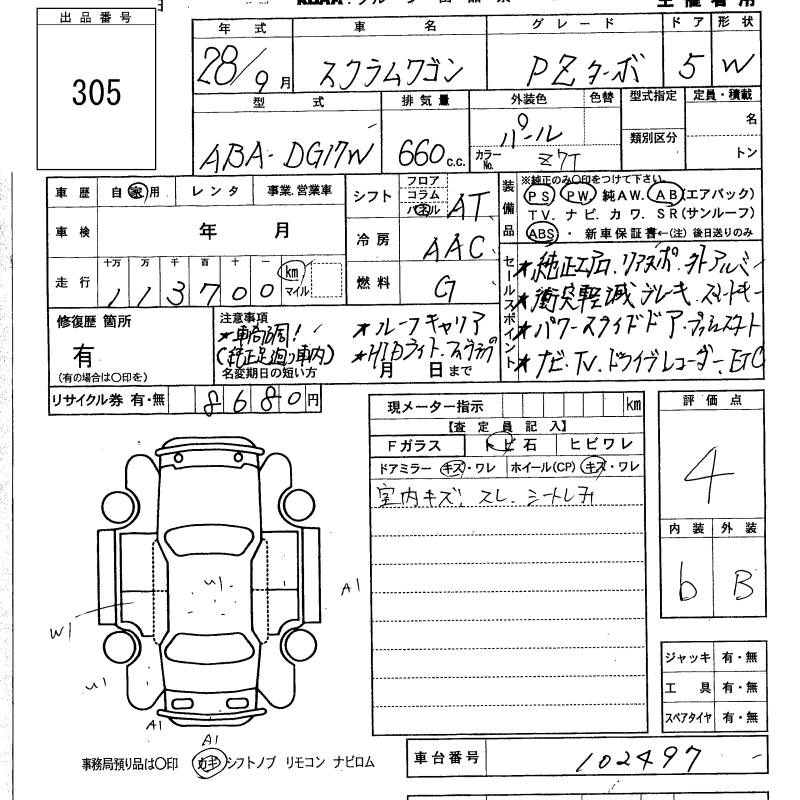 出品番号
305
年式 車名 グレード ドア 形状
28/9月 スクラムワゴン PZターボ 5 W
型式 排気量 外装色 色替 型式指定 定員・積載
ABA-DG17W 660c.c. パール カラーNo. Z7T 類別区分 名
トン
車歴 自家用 レンタ 事業.営業車
車検 年 月
走行 十万 万 千 百 十 一
113700 km マイル
シフト フロア コラム パネル AT
冷房 AAC
燃料 G
装備品 ※純正のみ〇印をつけて下さい。
PS PW 純AW. AB(エアバック)
TV. ナビ. カワ. SR(サンルーフ)
ABS・新車保証書←(注)後日送りのみ
セールスポイント
★純正エアロ.リアスポ.外アルミ
★衝突軽減ブレーキ.スマートキー
★パワースライドドア.プッシュスタート
★ナビ.TV.ドライブレコーダー.ETC
修復歴 箇所
有
(有の場合は〇印を)
注意事項
★車高調!
(純正足廻り車内)
★ルーフキャリア
★HIDライト.フォグランプ
名変期日の短い方 月 日まで
リサイクル券 有・無 8680円
現メーター指示 km
【査定員記入】
Fガラス トビ石 ヒビワレ
ドアミラー キズ・ワレ ホイール(CP) キズ・ワレ
室内キズ.スレ.シート
評価点
4
内装 外装
b B
U1
A1
W1
U1
A1
A1
ジャッキ 有・無
工具 有・無
スペアタイヤ 有・無
事務局預り品は〇印 カギ シフトノブ リモコン ナビロム
車台番号 102497